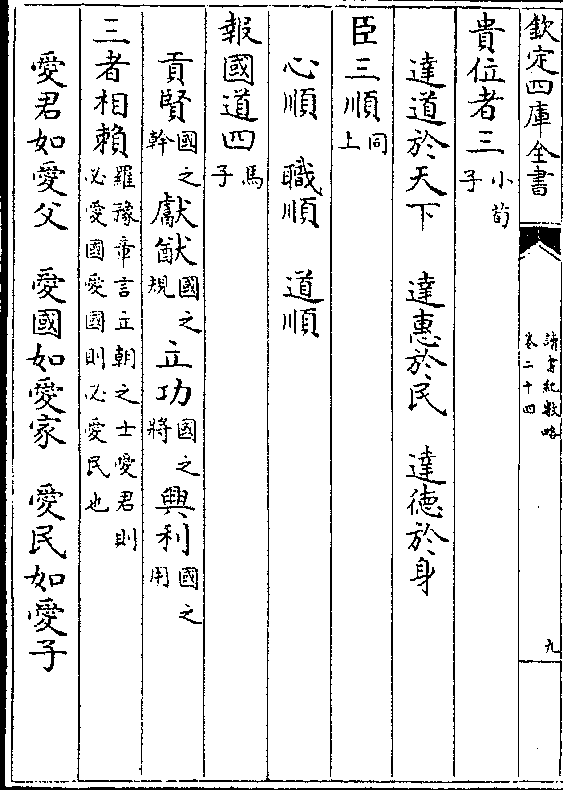 欽定四庫全書
讀書紀數略
卷二十四
九
貴位者三小荀子
達道於天下　達惠於民　達德於身
臣三順同上
心順　職順　道順
報國道四馬子
貢賢國之幹獻猷國之規立功國之將興利國之用
三者相賴羅豫章言立朝之士愛君則必愛國愛國則必愛民也
愛君如愛父　愛國如愛家　愛民如愛子